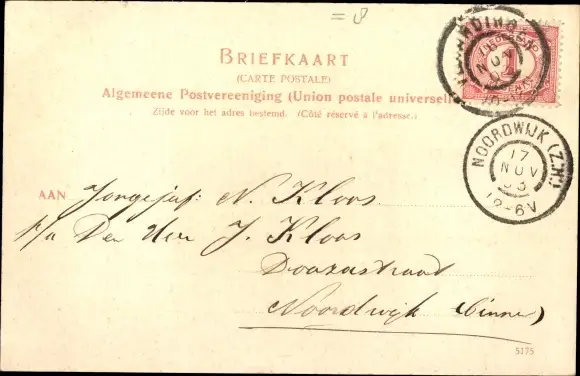 = 8
BRIEFKAART
(CARTE POSTALE)
Algemeene Postvereeniging (Union postale universelle)
Zijde voor het adres bestemd. (Côté réservé à l'adresse.)
1
NOV
NOORDWIJK (Z.H.)
17
NOV
03
12-6V
AAN Jongejuf: N. Kloos
p/a Den Heer J. Kloos
Douzastraat
Noordwijk (Binnen)
5175